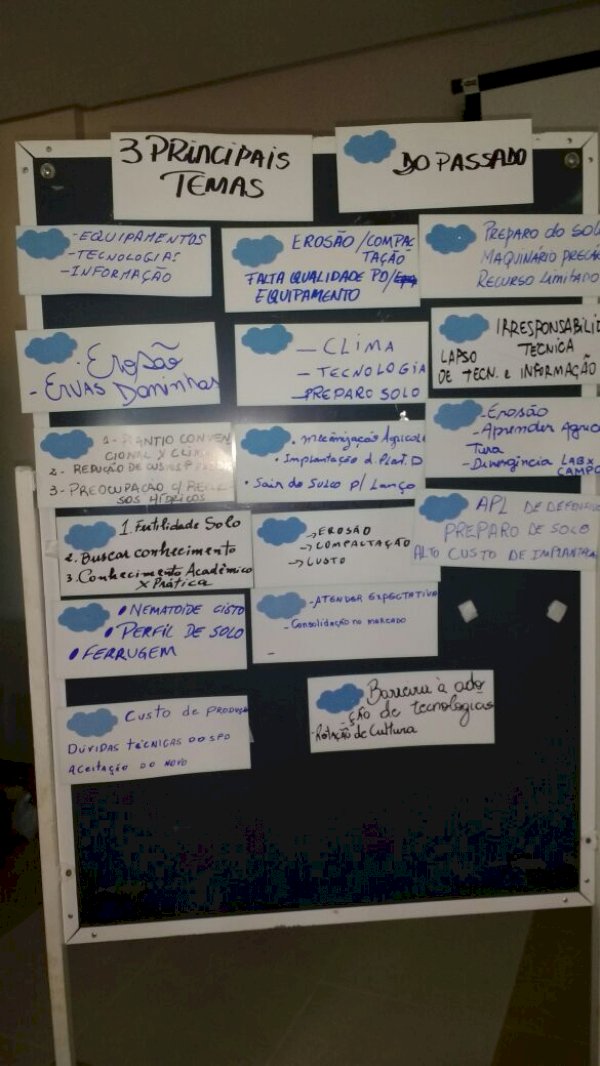 3 PRINCIPAIS
TEMAS
DO PASSADO
- EQUIPAMENTOS
- TECNOLOGIAS
- INFORMAÇÃO
EROSÃO / COMPAC
TAÇÃO
FALTA QUALIDADE PD/
EQUIPAMENTO
PREPARO do SOL
MAQUINÁRIO PRECÁR
RECURSO LIMITADO
- Erosão
- ERVAS Daninhas
- CLIMA
- TECNOLOGIA
- PREPARO SOLO
IRRESPONSABILID
TECNICA
LAPSO
DE TECN. e INFORMAÇÃO
1- PLANTIO CONVEN
CIONAL X CLIMA
2- REDUÇÃO DE
3- PREOCUPAÇÃO C/ RECUR
SOS HÍDRICOS
• Mecanização Agrícola
• Implantação d. Plant. D
• Sair do Sulco p/ Lanço
- Erosão
- Aprender Agricul
Tura
- Divergência LAB x
CAMPO
1. Fertilidade Solo
2. Buscar conhecimento
3. Conhecimento Acadêmico
x Prática
→ EROSÃO
→ COMPACTAÇÃO
→ CUSTO
APL DE DEFENSIV
PREPARO DE SOLO
ALTO CUSTO DE IMPLANTAÇÃ
• NEMATOIDE CISTO
• PERFIL DE SOLO
• FERRUGEM
- ATENDER EXPECTATIVA
- Consolidação no mercado
-
CUSTO DE PRODUÇÃO
DÚVIDAS TÉCNICAS DO SPD
ACEITAÇÃO DO NOVO
Barreira à ado
ção de tecnologias
- Rotação de Cultura